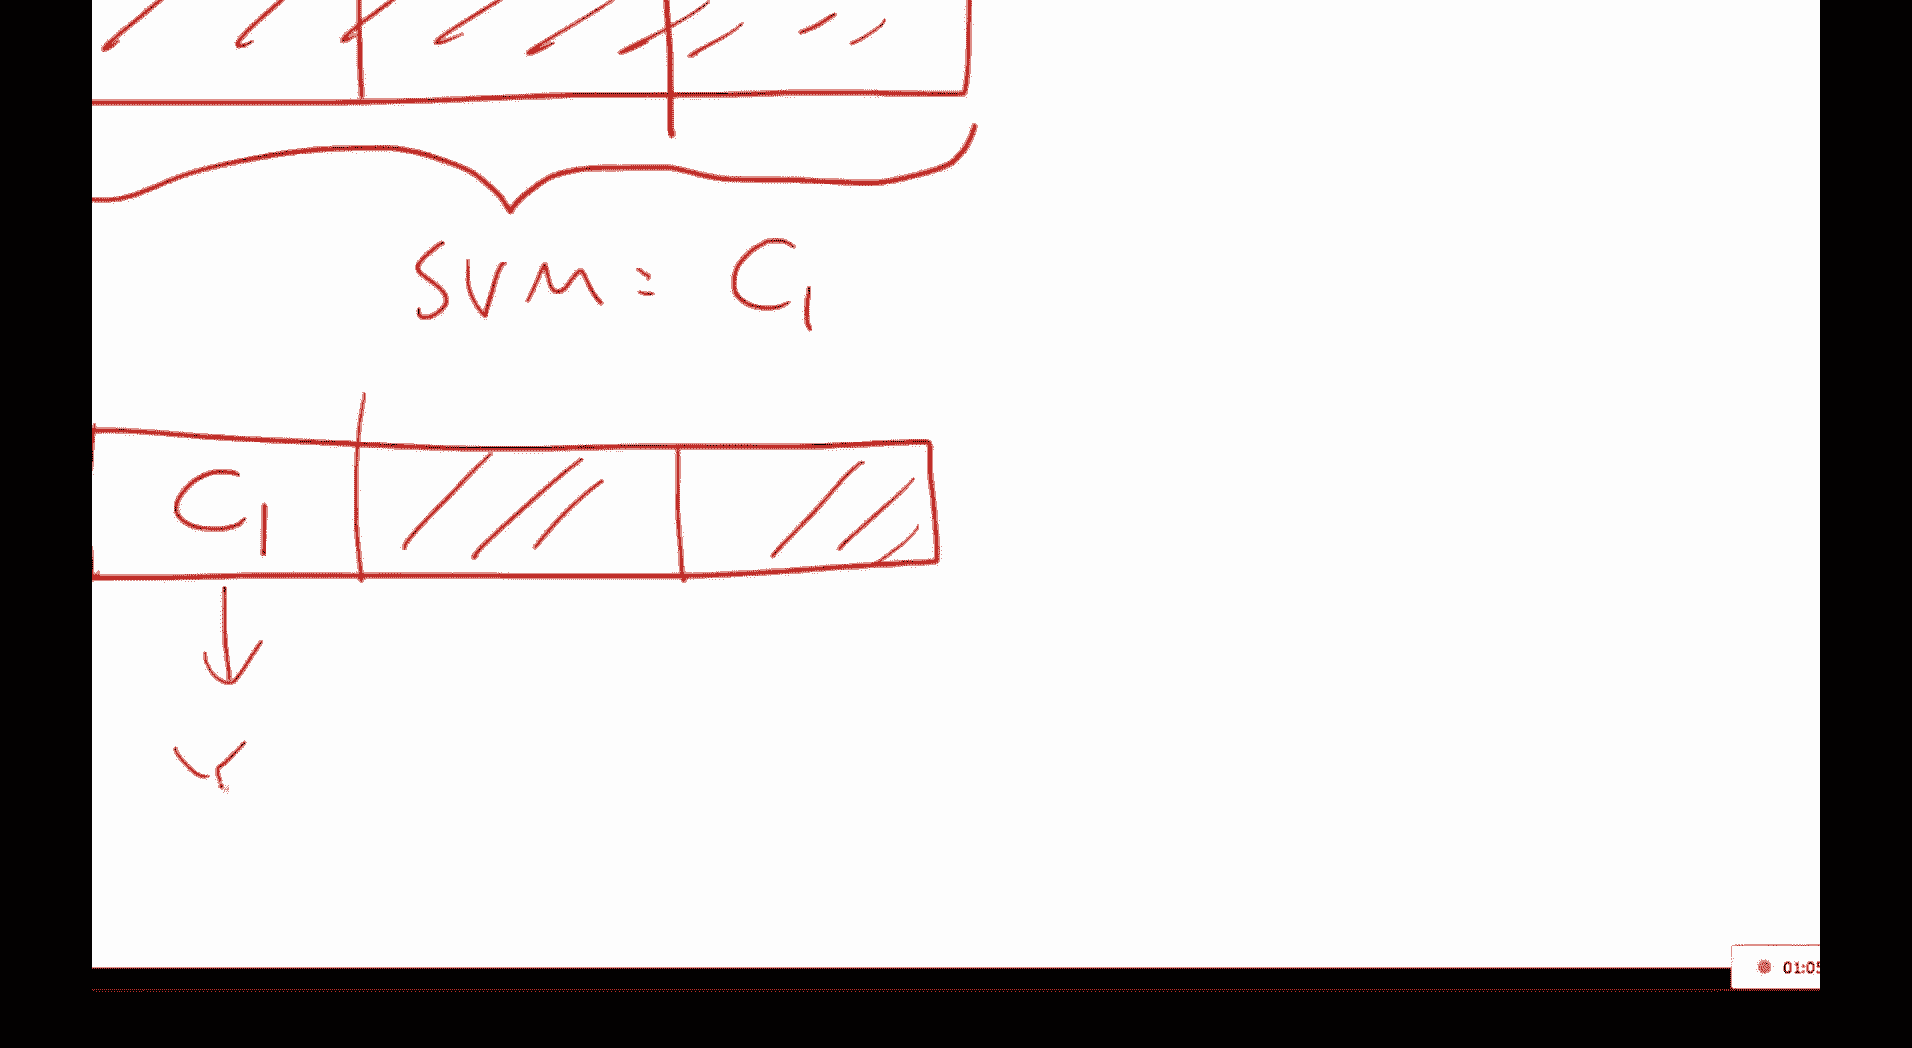 SVM = C1
C1
Y
01:05